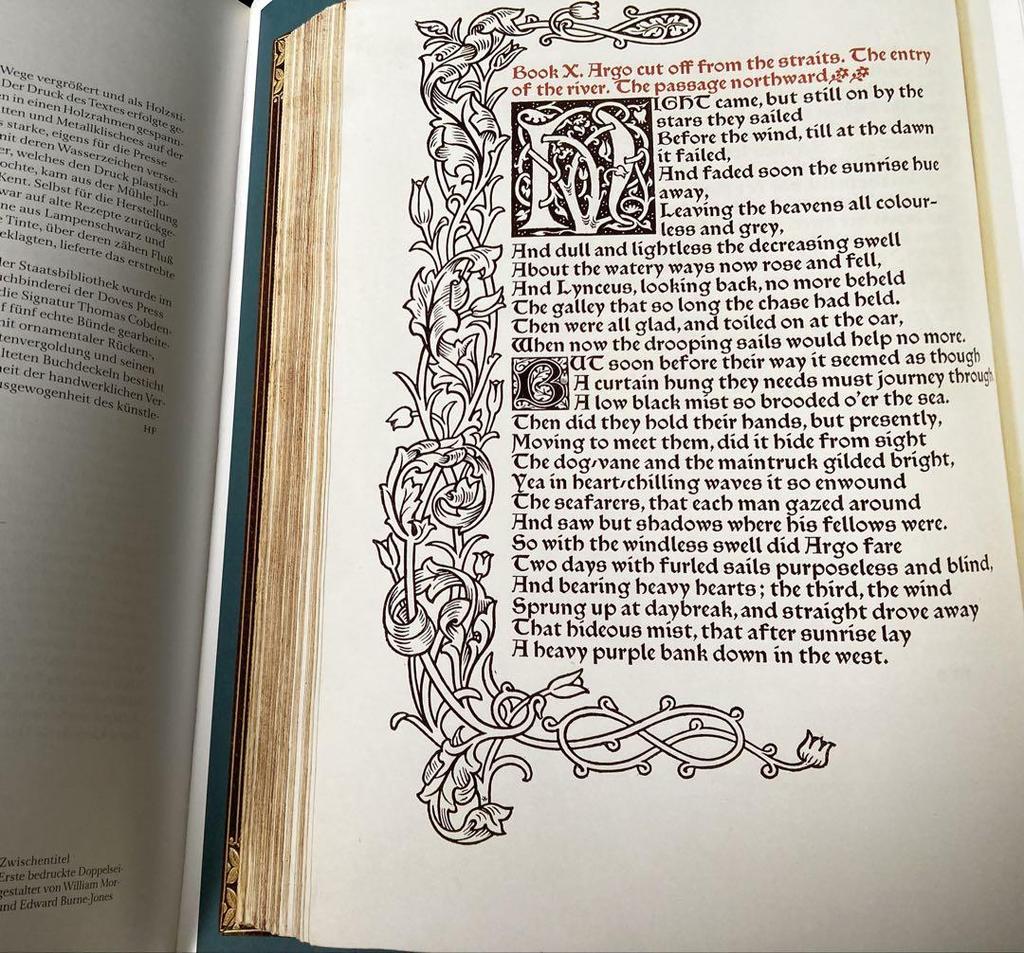 Wege vergrößert und als Holzsti-
Der Druck des Textes erfolgte ge-
n in einen Holzrahmen gespann-
tten und Metallklischees auf der
s starke, eigens für die Presse
mit deren Wasserzeichen verse-
er, welches den Druck plastisch
ochte, kam aus der Mühle Jo-
Kent. Selbst für die Herstellung
war auf alte Rezepte zurückge-
ne aus Lampenschwarz und
e Tinte, über deren zähen Fluß
eklagten, lieferte das erstrebte
der Staatsbibliothek wurde im
uchbinderei der Doves Press
die Signatur Thomas Cobden-
f fünf echte Bünde gearbeite-
mit ornamentaler Rücken-,
tenvergoldung und seinen
lteten Buchdeckeln besticht
heit der handwerklichen Ver-
usgewogenheit des künstle-
HF
Zwischentitel
Erste bedruckte Doppelsei-
gestaltet von William Mor-
und Edward Burne-Jones
Book X. Argo cut off from the straits. The entry
of the river. The passage northward
NIGHT came, but still on by the
stars they sailed
Before the wind, till at the dawn
it failed,
And faded soon the sunrise hue
away,
Leaving the heavens all colour-
less and grey,
And dull and lightless the decreasing swell
About the watery ways now rose and fell,
And Lynceus, looking back, no more beheld
The galley that so long the chase had held.
Then were all glad, and toiled on at the oar,
When now the drooping sails would help no more.
BUT soon before their way it seemed as though
A curtain hung they needs must journey through
A low black mist so brooded o'er the sea.
Then did they hold their hands, but presently,
Moving to meet them, did it hide from sight
The dog-vane and the maintruck gilded bright,
Yea in heart-chilling waves it so enwound
The seafarers, that each man gazed around
And saw but shadows where his fellows were.
So with the windless swell did Argo fare
Two days with furled sails purposeless and blind,
And bearing heavy hearts; the third, the wind
Sprung up at daybreak, and straight drove away
That hideous mist, that after sunrise lay
A heavy purple bank down in the west.